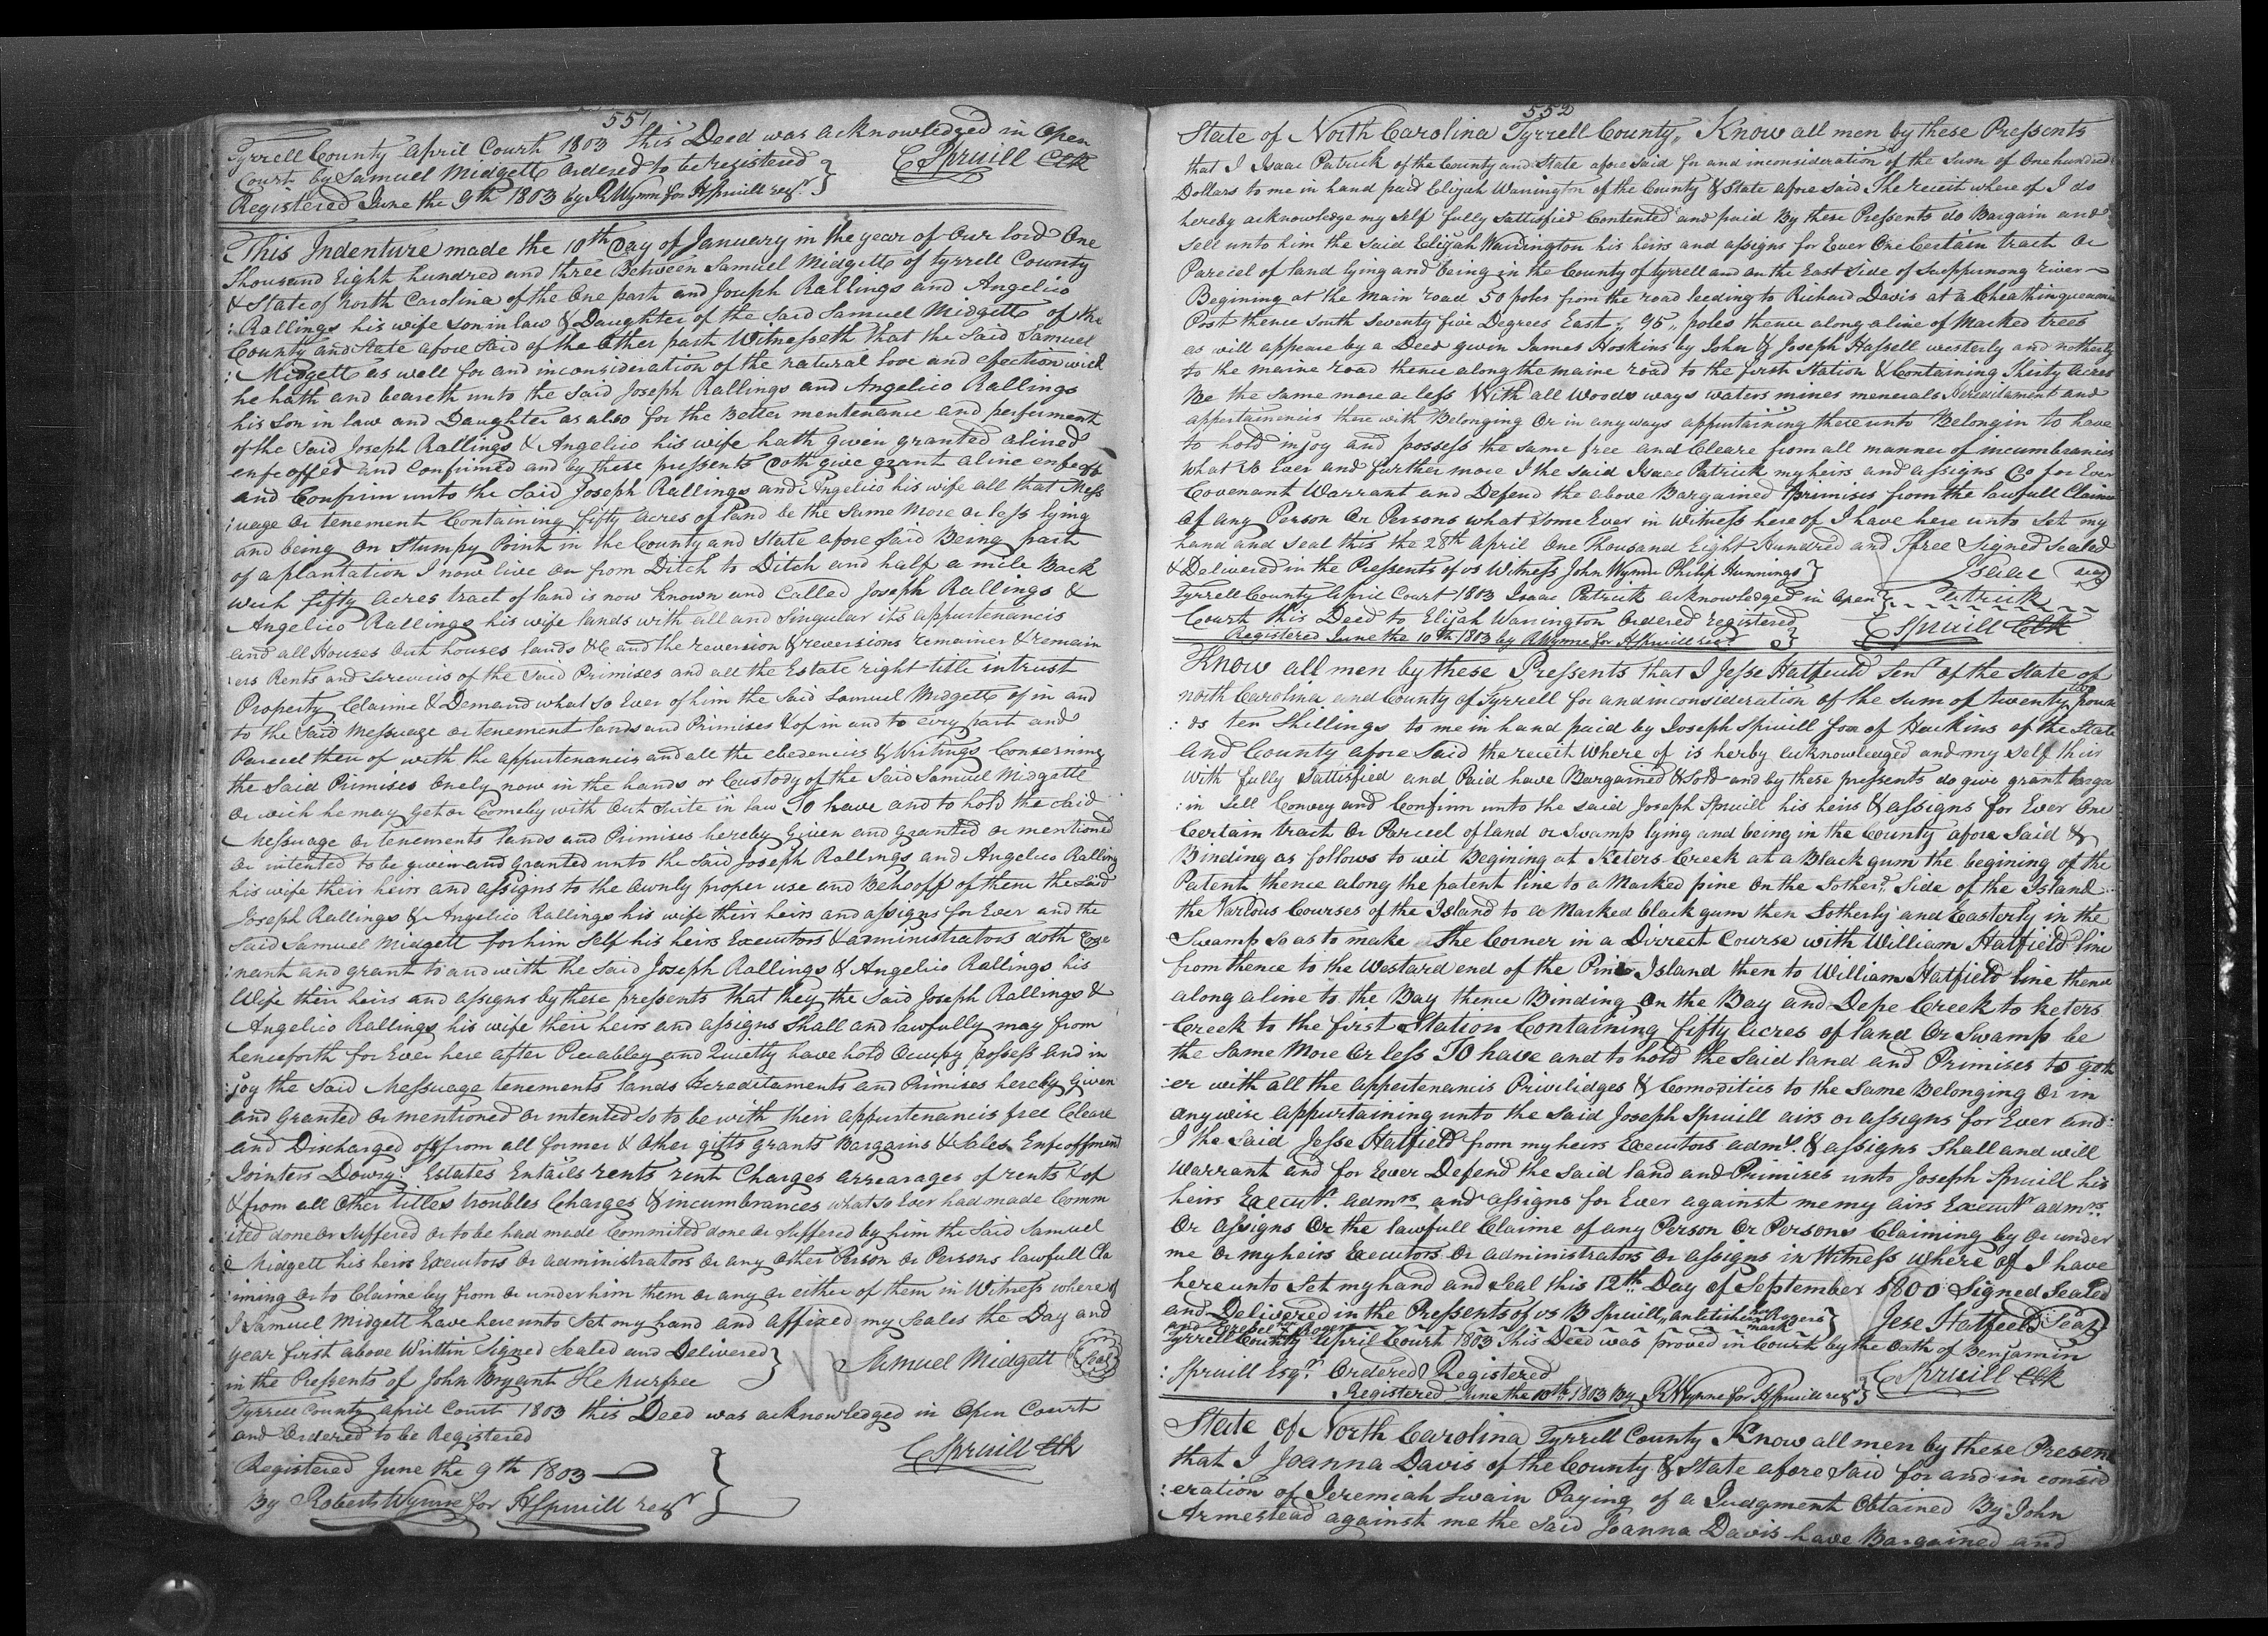 551
Tyrrell County April Court 1803 this Deed was acknowledged in Open
Court by Samuel Midgett Ordered to be registered } C Spruill Clk
Registered June the 9th 1803 by R Wynn for H Spruill regr.
This Indenture made the 10th Day of January in the year of Our lord One
Thousand Eight hundred and three Between Samuel Midgett of tyrrell County
& State of North Carolina of the One part and Joseph Rallings and Angelico
: Rallings his wife son in law & Daughter of the said Samuel Midgett of the
County and State afore Said of the Other part Witnesseth that the said Samuel
: Midgett as well for and inconsideration of the natural love and efection wich
he hath and beareth unto the Said Joseph Rallings and Angelico Rallings
his Son in law and Daughter as also for the Better mentenance and perferment
of the Said Joseph Rallings & Angelico his wife hath given granted alined
enfeoffed and Confirmed and by these pressents doth give grant aline enfeoff
and Confirm unto the Said Joseph Rallings and Angelico his wife all that Mess
:uage or tenement Containing fifty acres of land be the Same More or less lying
and being on Stumpy Point in the County and State afore Said Being part
of a plantation I now live on from Ditch to Ditch and half a mile Back
wich fifty acres tract of land is now known and Called Joseph Rallings &
Angelico Rallings his wife lands with all and Singular its appurtenancis
and all Houses Out houses lands &C and the reversion & reversions remainer & remain
:ers Rents and servicis of the Said Primises and all the Estate right title intrust
Property Claime & Demand what so Ever of him the Said Samuel Midgett of in and
to the Said Messuage or tenement lands and Primises & of in and to evry part and
Parcel there of with the appurtenancis and all the evedencis & Writings Conserning
the Said Primises Onely now in the hands or Custody of the Said Samuel Midgett
Or wich he may get or Comeby with Out Suite in law To have and to hold the Said
Messuage or tenements lands and Primises hereby Given and granted or mentioned
Or intented to be given and granted unto the Said Joseph Rallings and Angelico Ralling
his wife their heirs and assigns to the Ownly proper use and Behooff of them the Said
Joseph Rallings & Angelico Rallings his wife their heirs and assigns for Ever and the
Said Samuel Midgett for him Self his heirs Executors & administrators doth Cove
:nant and grant to and with the Said Joseph Rallings & Angelico Rallings his
Wife their heirs and assigns by these pressents that they the Said Joseph Rallings &
Angelico Rallings his wife their heirs and assigns Shall and lawfully may from
henceforth for Ever here after Peacabley and Quietly have hold Occupy possess and in
:joy the Said Messuage tenements lands hereditaments and Primises hereby given
and Granted Or mentioned Or intented so to be with their appurtenancis free Cleare
and Discharged off from all former & Other gifts grants Bargains & Sales Enfeoffment
Jointers Dowry Estates Entails rents rent Charges arrearages of rents & of
& from all Other titles troubles Charges & incumbrances what so Ever had made Comm
:ited done Or Suffered or to be had made Committed done or Suffered by him the Said Samuel
Midgett his heirs Executors Or administrators Or any Other Person or Persons lawfull Cla
:iming Or to Claime by from Or under him them Or any or either of them in Witness where of
I Samuel Midgett have here unto Set my hand and affixed my Seales the Day and
year first above Writtin Signed Sealed and Delivered } Samuel Midgett (Seal)
in the Pressents of John Bryant
Tyrrell County April Court 1803 this Deed was acknowledged in Open Court
and Ordered to be Registered C Spruill Clk
Registered June the 9th 1803
By Roberts Wynne for H Spruill regr }
552
State of North Carolina Tyrrell County,, Know all men by these Pressents
that I Isaac Patrick of the County and State afore Said for and inconsideration of the Sum of One hundred
Dollars to me in hand paid Elijah Warrington of the County & State afore Said The receit where of I do
hereby acknowledge my Self fully Sattisfied Contented and paid By these Pressents do Bargain and
Sell unto him the Said Elijah Warrington his heirs and assigns for Ever One Certain tract Or
Parciel of land lying and being in the County of tyrrell and on the East Side of Scuppurnong river
Begining at the Main road 50 poles from the road leeding to Richard Davis at a
Post thence South Seventy five Degrees East,, 95,, poles thence along a line of Marked trees
as will appeare by a Deed given James Hoskins by John & Joseph Hassell westerly and notherly
to the maine road thence along the maine road to the first Station & Containing Thirty acres
Be the same more or less With all Woods ways waters mines menerals Hereditament and
appertainencis there with Belonging Or in any ways appurtaining there unto Belongin to have
to hold injoy and possess the same free and Cleare from all manner of incumbrancis
What So Ever and further more I the said Isaac Patrick my heirs and assigns Co for Ever
Covenant Warrant and Defend the above Bargained primises from the lawfull Claime
Of any Person Or Persons what Some Ever in Witness here of I have here unto Set my
hand and Seal this the 28th April One Thousand Eight Hundred and Three Signed Sealed
& Delivered in the Pressents of us Witness John Wynne Philip Hunnings } Isaac Patrick (Seal)
Tyrrell County April Court 1803 Isaac Patrick acknowledged in Open
Court this Deed to Elijah Warrington Ordered registered C Spruill Clk
Registered June the 10th 1803 by R Wynne for H Spruill regr }
Know all men by these Pressents that I Jesse Hatfield Senr of the State of
North Carolina and County of Tyrrell for and inconsideration of the sum of twenty poun
:ds ten Shillings to me in hand paid by Joseph Spruill Son of Heckins of the State
and County afore Said the receit Where of is herby acknowledged and my Self their
With fully Sattisfied and Paid have Bargained & Sold and by these pressents do give grant barga
:in Sell Convey and Confirm unto the said Joseph Spruill his heirs & assigns for Ever One
Certain tract Or Parciel of land or Swamp lying and being in the County afore Said &
Binding as follows to wit Begining at Keters Creek at a Black gum the begining of the
Patent thence along the patent line to a Marked pine On the Sotherd. Side of the Island
the Various Courses of the Island to a Marked black gum then Sotherly and Easterly in the
Swamp So as to make the Corner in a Dirrect Course with William Hatfield line
from thence to the Westard end of the Pine Island then to William Hatfield line thence
along a line to the Bay thence Binding On the Bay and Depe Creek to Keters
Creek to the first Station Containing fifty acres of land Or Swamp be
the Same More Or less To have and to hold the Said land and Primises to geth
:er with all the appertenancis Priviledges & Comodities to the Same Belonging Or in
any wise appurtaining unto the Said Joseph Spruill airs or assigns for Ever and
I the Said Jesse Hatfield from my heirs Executors admrs. & assigns Shall and will
Warrant and for Ever Defend the Said land and Primises unto Joseph Spruill his
heirs Executr. admrs and assigns for Ever against me my airs Executr admrs.
Or assigns Or the lawfull Claime of any Person Or Persons Claiming by or under
me Or my heirs Executors Or administrators Or assigns in Witness where of I have
here unto Set my hand and Seal this 12th Day of September 1800 Signed Sealed
and Delivered in the Pressents of us B Spruill,, her mark Rogers } Jese Hatfield (Seal)
Tyrrell County April Court 1803 This Deed was proved in Court by the Oath of Benjamin
: Spruill Esqr. Ordered Registered C Spruill Clk
Registered June the 10th 1803 By R Wynne for H Spruill regr }
State of North Carolina Tyrrell County Know all men by these Present
that I Joanna Davis of the County & State afore Said for and in consid
:eration of Jeremiah Swain Paying of a Judgment Obtained By John
Armestead against me the Said Joanna Davis have Bargained and